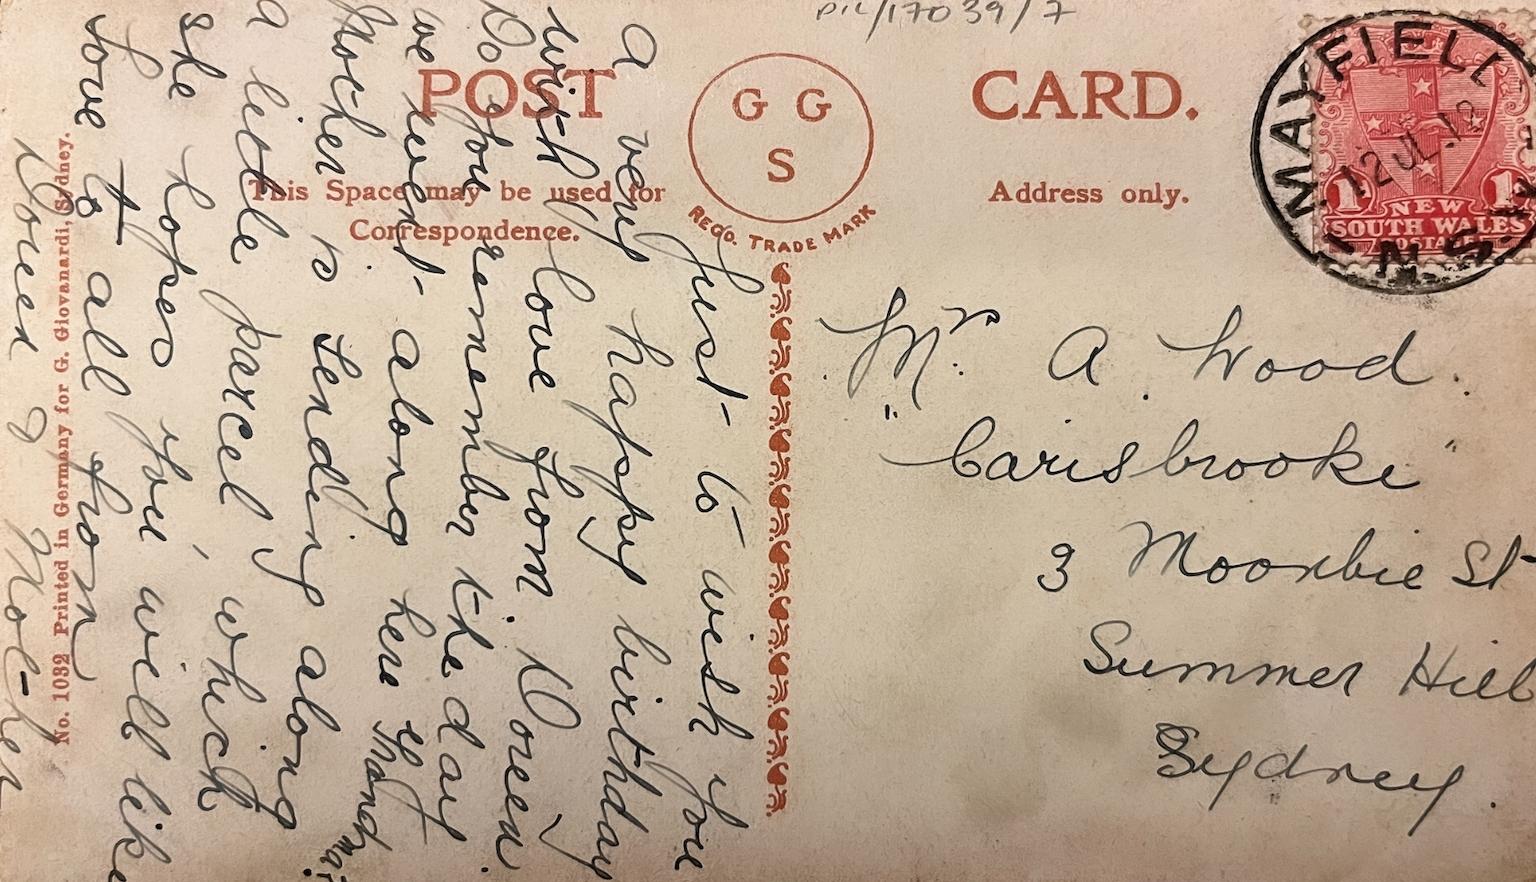 PIC/17039/7
POST CARD.
G G
S
REGD. TRADE MARK
This Space may be used for
Correspondence.
Address only.
MAYFIELD
12 JL 12
N.S.W
1 1
NEW
SOUTH WALES
POSTAGE
Just to wish you
a very happy birthday
with love from Doreen
Do you remember the day
we went along here Grandma?
Mother is sending along
a little parcel which
she hopes you will like
Love to all from
Doreen & Mother
Mrs. A. Wood.
"Carisbrooke"
3 Moonbie St
Summer Hill
Sydney.
No. 1032 Printed in Germany for G. Giovanardi, Sydney.